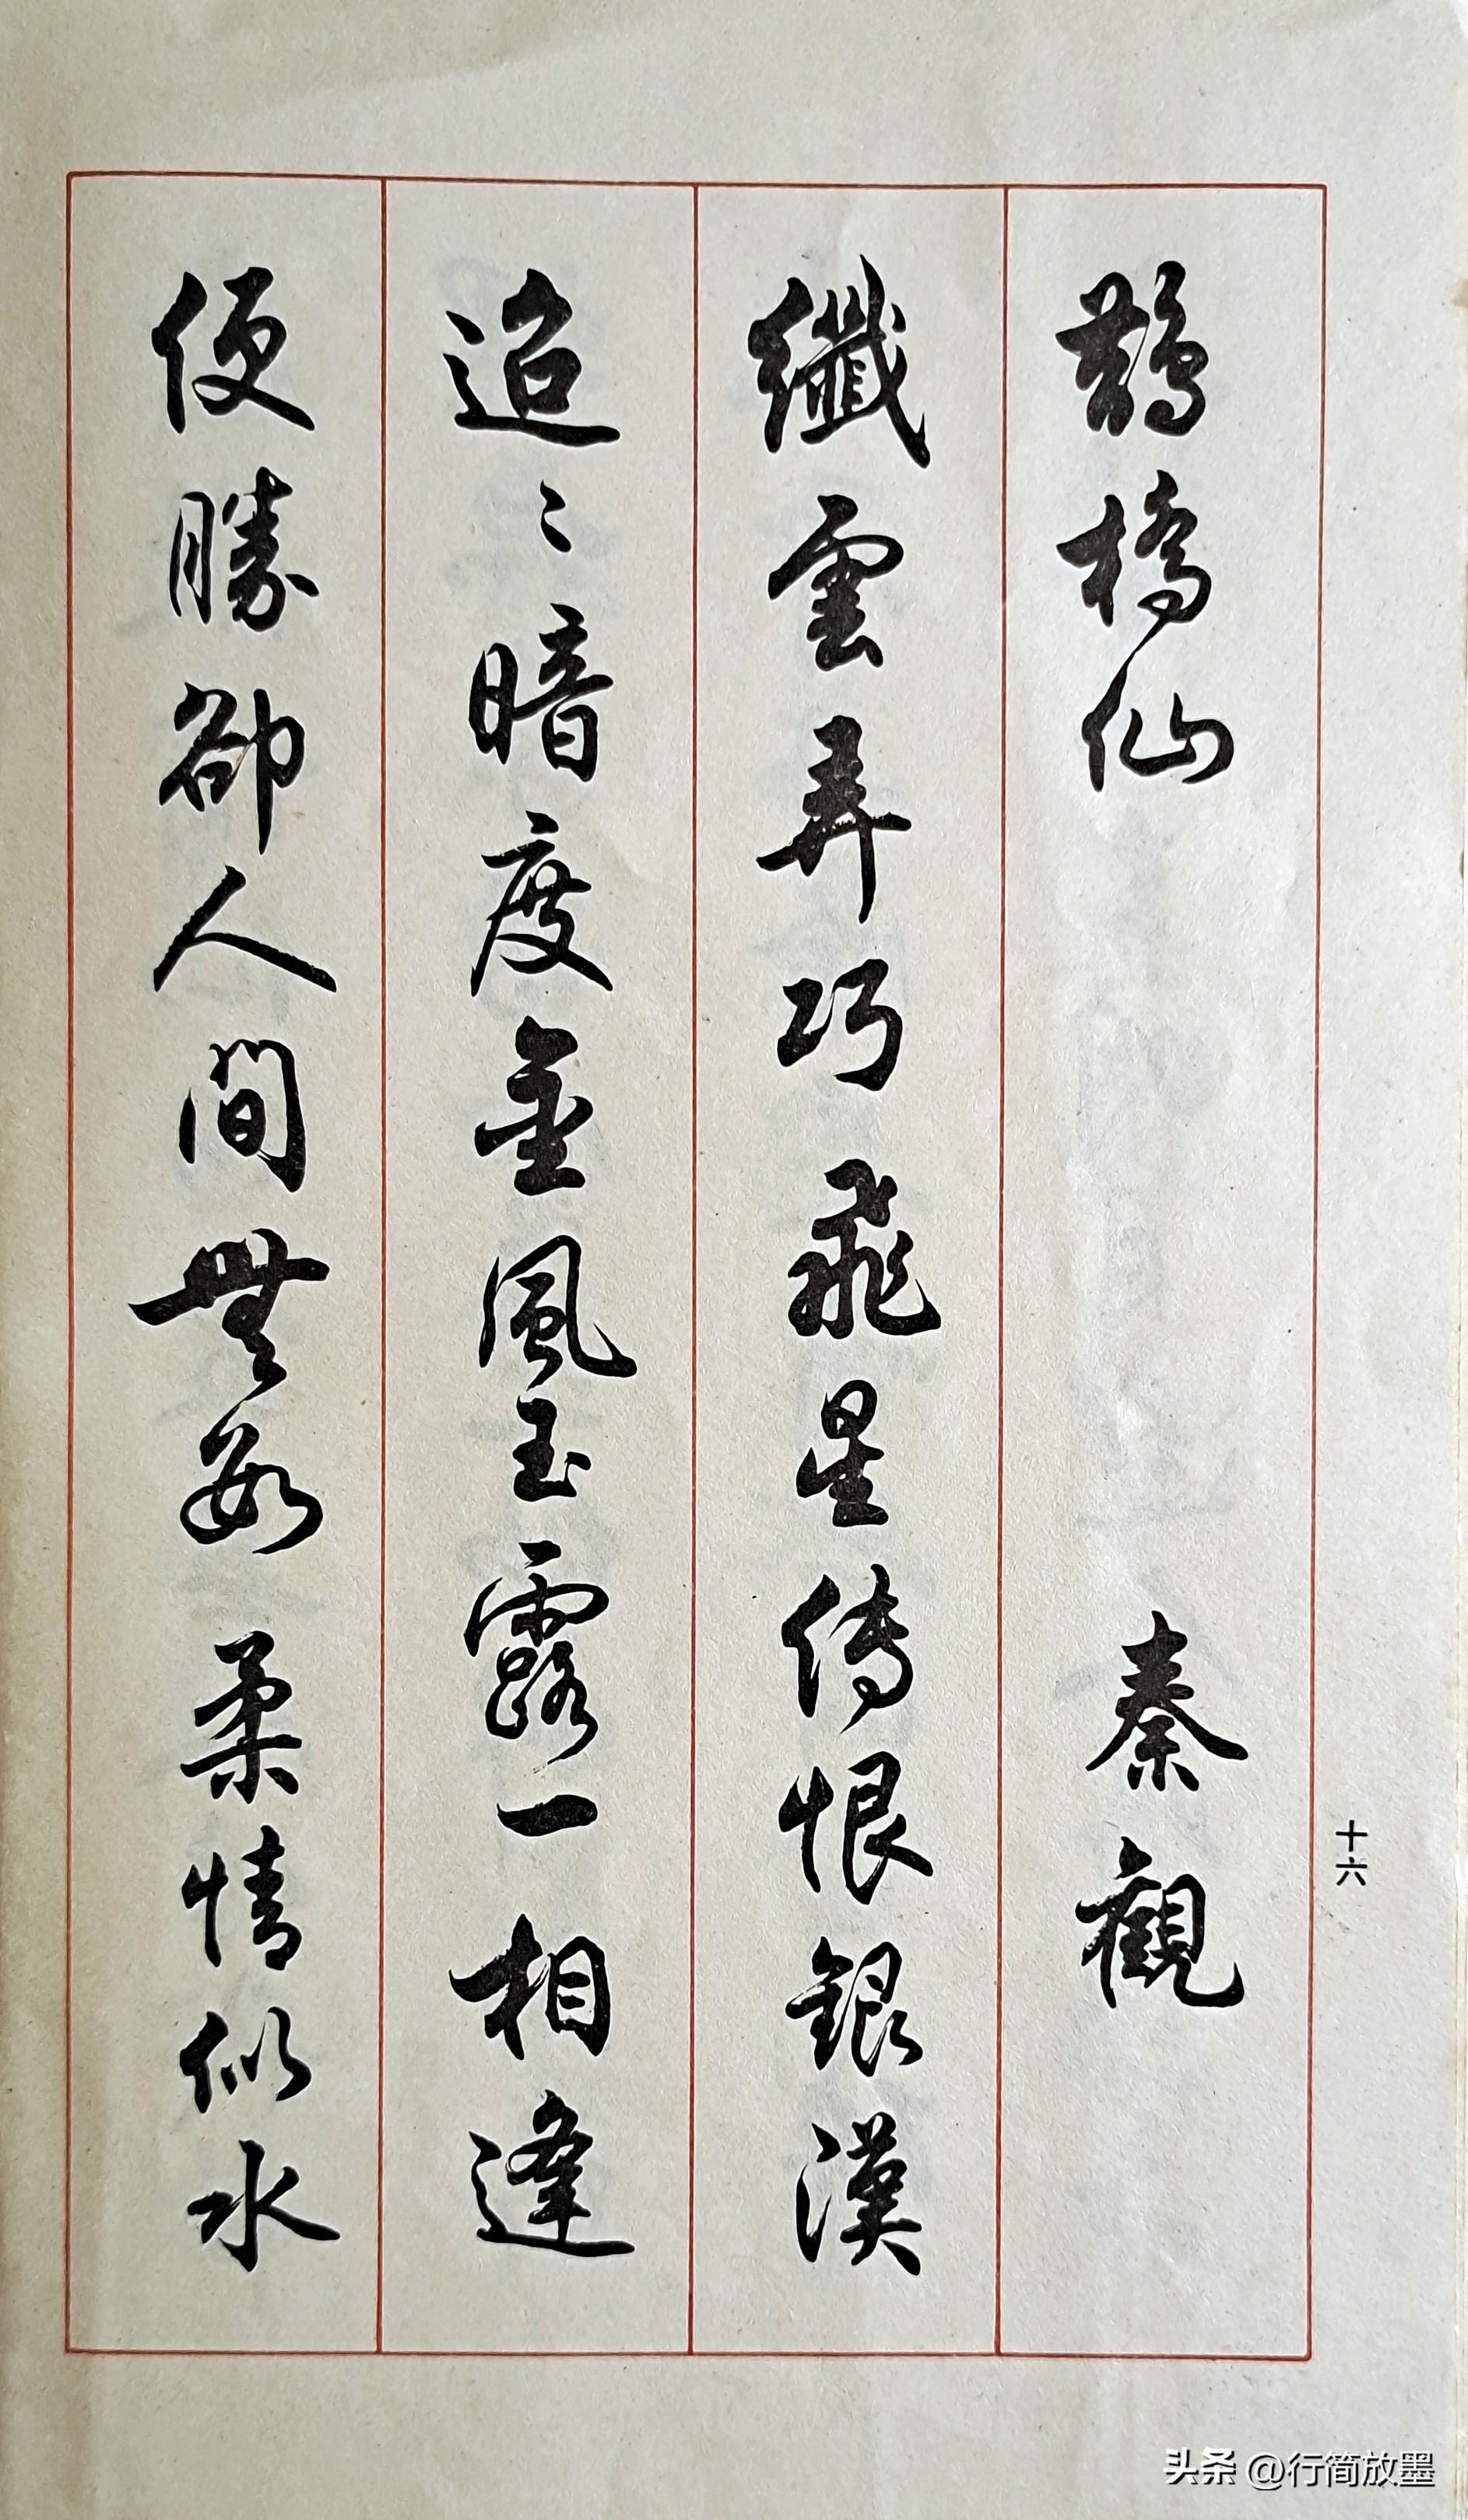 鵲橋仙 秦觀
纖雲弄巧飛星傳恨銀漢
迢〻暗度金風玉露一相逢
便勝卻人間無數 柔情似水
十六
头条 @行简放墨